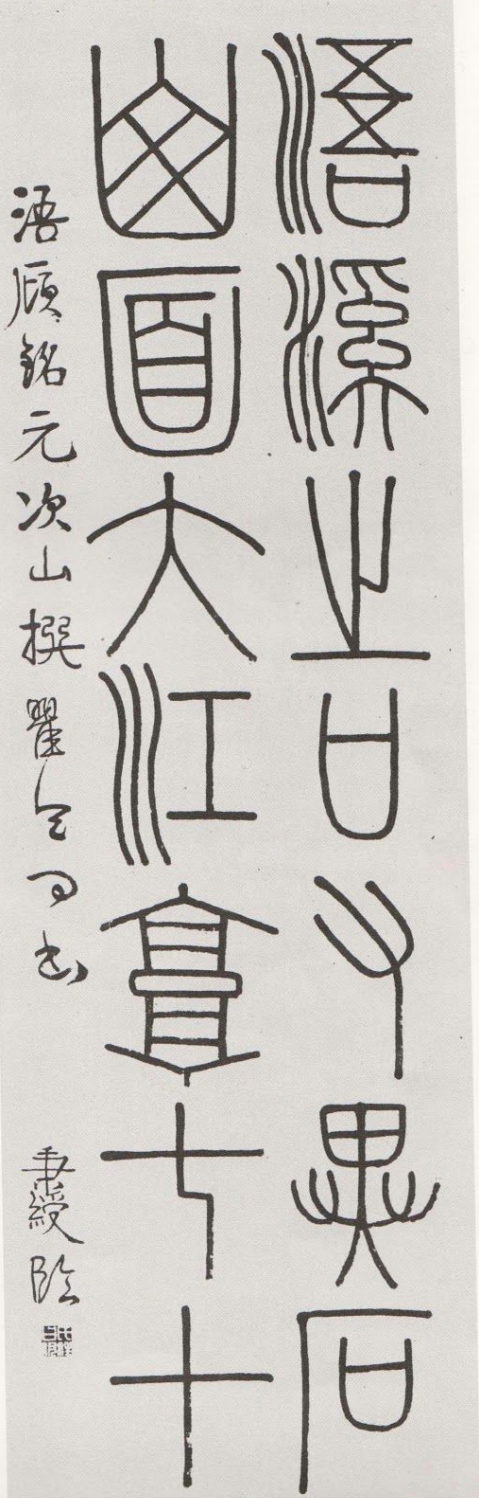 浯溪之口又異石
西面大江七十
浯廎銘元次山撰瞿令問書
秉綬臨